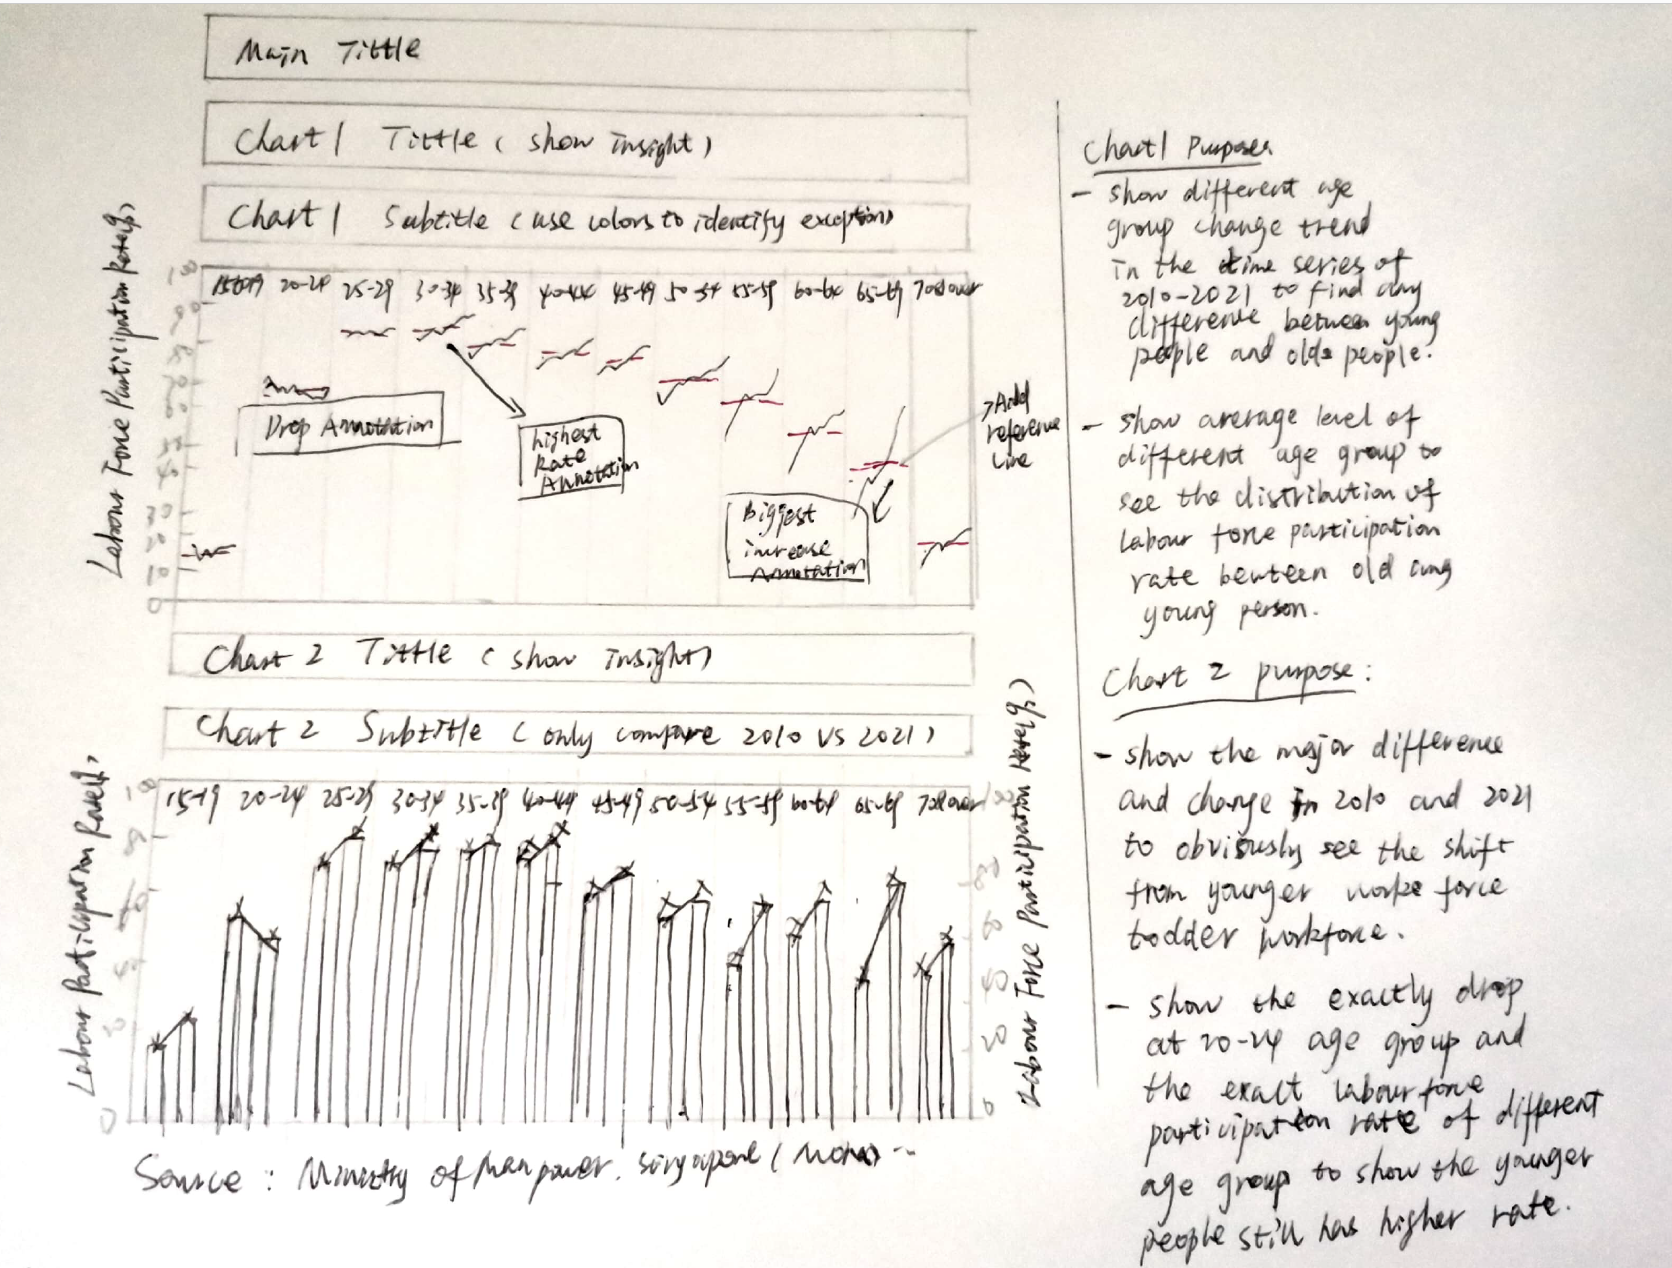 Main Tittle
Chart 1 Tittle ( show insight )
Chart 1 Subtitle ( use colors to identify exception )
Labour Force Participation Rate(%)
100
90
80
70
60
50
40
30
20
10
0
15to19 20-24 25-29 30-34 35-39 40-44 45-49 50-54 55-59 60-64 65-69 70&over
Drop Annotation
highest
Rate
Annotation
Biggest
increase
Annotation
Add
reference
line
Chart 2 Tittle ( show insight )
Chart 2 Subtitle ( only compare 2010 VS 2021 )
Labour Participation Rate(%)
100
80
60
40
20
0
15-19 20-24 25-29 30-34 35-39 40-44 45-49 50-54 55-59 60-64 65-69 70&over
100
80
60
40
20
0
Labour Force Participation Rate(%)
Source : Ministry of Manpower, Singapore ( ) ...
Chart 1 Purpose
- show different age
group change trend
in the time series of
2010-2021 to find any
difference between young
people and olds people.
- show average level of
different age group to
see the distribution of
labour force participation
rate bewteen old ang
young person.
Chart 2 purpose :
- show the major difference
and change in 2010 and 2021
to obviously see the shift
from younger force
workforce.
- show the exactly drop
at 20-24 age group and
the exact labour force
participation rate of different
age group to show the younger
people still has higher rate.